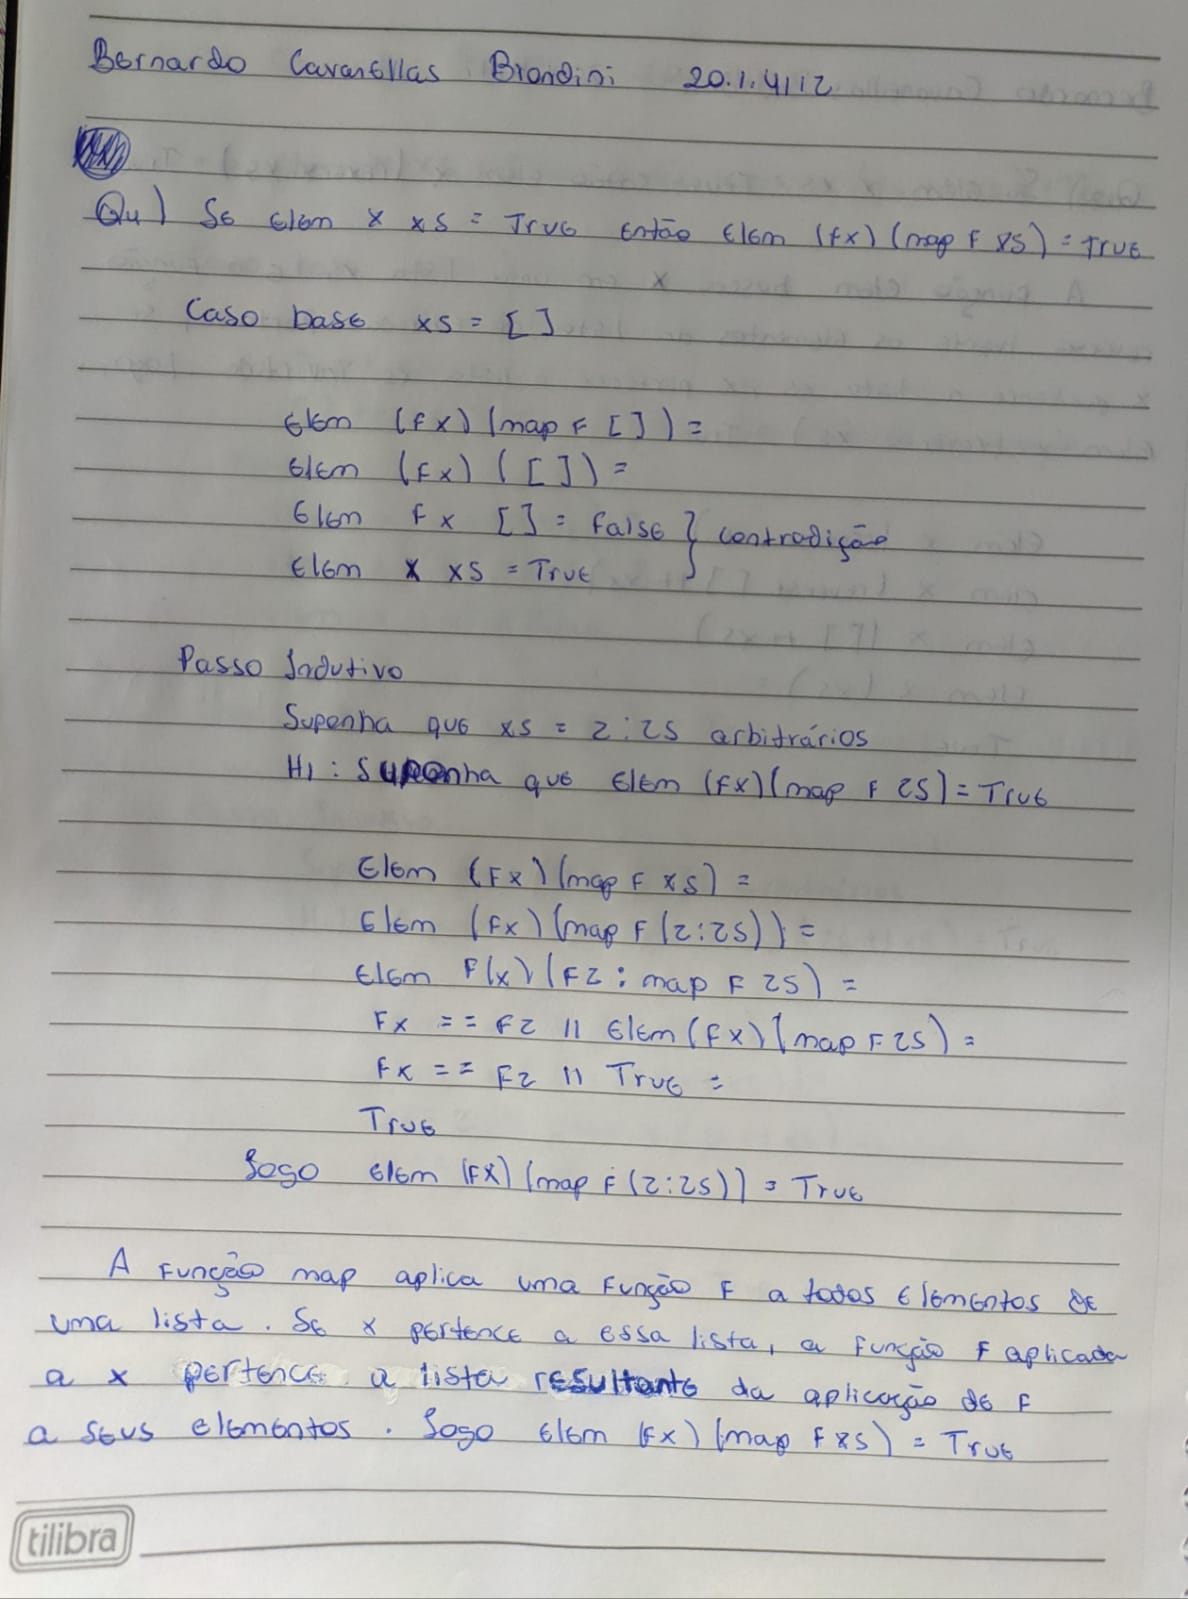 Bernardo Cavanellas Biondini 20.1.4112
Qu) Se elem x xs = True então elem (fx) (map f xs) = True
Caso base xs = []
elem (fx) (map f []) =
elem (fx) ([]) =
elem fx [] = false } contradição
elem x xs = True
Passo Indutivo
Suponha que xs = z:zs arbitrários
HI: Suponha que elem (fx) (map f zs) = True
elem (fx) (map f xs) =
elem (fx) (map f (z:zs)) =
elem f(x) (fz : map f zs) =
fx == fz || elem (fx) (map f zs) =
fx == fz || True =
True
Logo elem (fx) (map f (z:zs)) = True
A função map aplica uma função f a todos elementos de
uma lista. Se x pertence a essa lista, a função f aplicada
a x pertence a lista resultante da aplicação de f
a seus elementos. Logo elem (fx) (map f xs) = True
tilibra